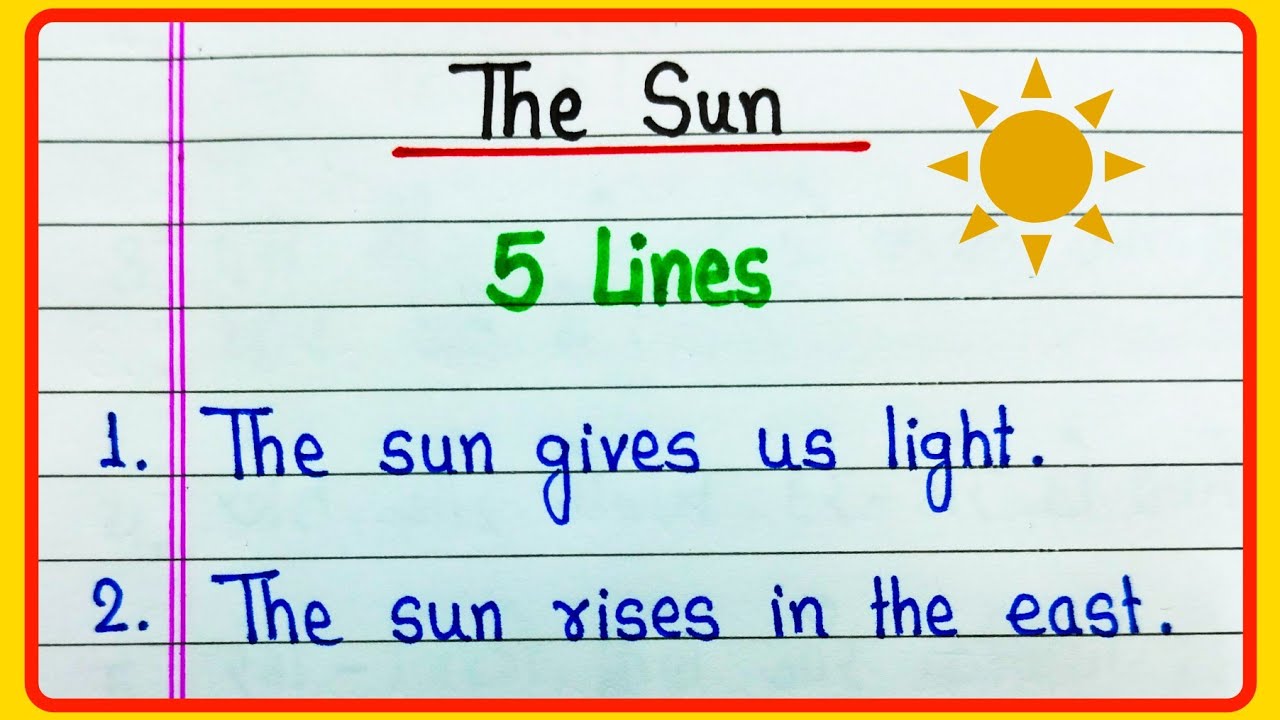 The Sun
5 Lines
1. The sun gives us light.
2. The sun rises in the east.